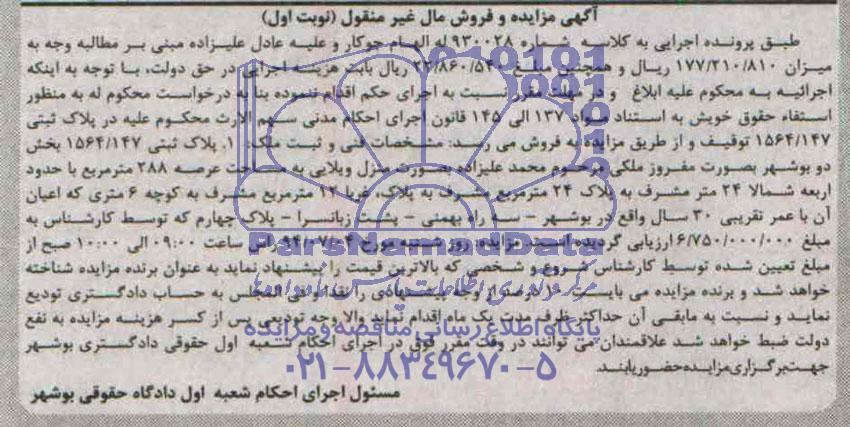 آگهی مزایده و فروش مال غیر منقول (نوبت اول)
طبق پرونده اجرایی به کلاسه شماره ۹۳۰۰۲۸ له الهام جوکار و علیه عادل علیزاده مبنی بر مطالبه وجه به
میزان ۱۷۷/۲۱۰/۸۱۰ ریال و همچنین مبلغ ۲۲/۸۶۰/۵۴۰ ریال بابت هزینه اجرایی در حق دولت، با توجه به اینکه
اجرائیه به محکوم علیه ابلاغ و در مهلت مقرر نسبت به اجرای حکم اقدام ننموده بنا به درخواست محکوم له به منظور
استفاء حقوق خویش به استناد مواد ۱۳۷ الی ۱۴۵ قانون اجرای احکام مدنی سهم الارث محکوم علیه در پلاک ثبتی
۱۵۶۴/۱۴۷ توقیف و از طریق مزایده به فروش می رسد: مشخصات فنی و ثبت ملک: ۱. پلاک ثبتی ۱۵۶۴/۱۴۷ بخش
دو بوشهر بصورت مفروز ملکی مرحوم محمد علیزاده بصورت منزل ویلایی به مساحت عرصه ۲۸۸ مترمربع با حدود
اربعه شمالا ۲۴ متر مشرف به پلاک ۲۴ مترمربع مشرف به پلاک، غربا ۱۲ مترمربع مشرف به کوچه ۶ متری که اعیان
آن با عمر تقریبی ۳۰ سال واقع در بوشهر - سه راه بهمنی - پشت زیانسرا - پلاک چهارم که توسط کارشناس به
مبلغ ۶/۷۵۰/۰۰۰/۰۰۰ ارزیابی گردیده است. مزایده: روز شنبه مورخ ۹۴/۰۷/۰۴ راس ساعت ۰۹:۰۰ الی ۱۰:۰۰ صبح از
مبلغ تعیین شده توسط کارشناس شروع و شخصی که بالاترین قیمت را پیشنهاد نماید به عنوان برنده مزایده شناخته
خواهد شد و برنده مزایده می بایست ۱۰ درصد از وجه پیشنهادی را نقدا و فی المجلس به حساب دادگستری تودیع
نماید و نسبت به مابقی آن حداکثر ظرف مدت یک ماه اقدام نماید والا وجه تودیعی پس از کسر هزینه مزایده به نفع
دولت ضبط خواهد شد علاقمندان می توانند در وقت مقرر فوق در اجرای احکام شعبه اول حقوقی دادگستری بوشهر
جهت برگزاری مزایده حضور یابند.
مسئول اجرای احکام شعبه اول دادگاه حقوقی بوشهر
ParsNamadData
پایگاه اطلاع رسانی مناقصه و مزایده
۰۲۱-۸۸۳۴۹۶۷۰-۵